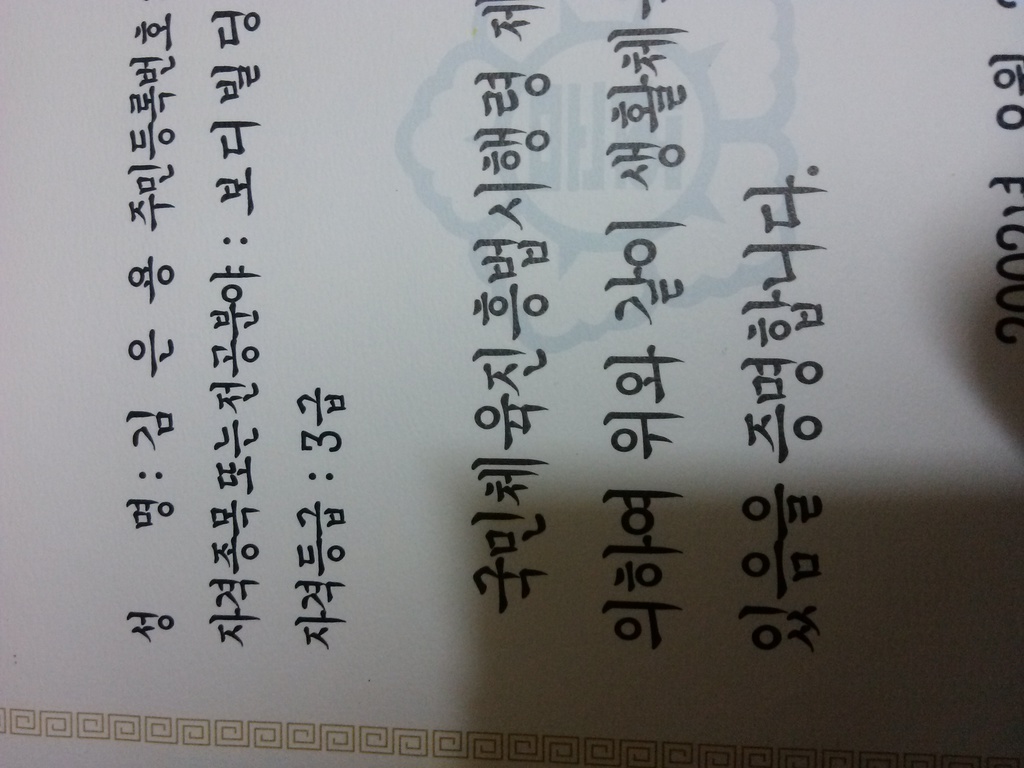 성 명 : 김 은 용 주민등록번호
자격종목또는전공분야 : 보디빌딩
자격등급 : 3급
국민체육진흥법시행령 체
의하여 위와 같이 생활체
있음을 증명합니다.
2002년 9월